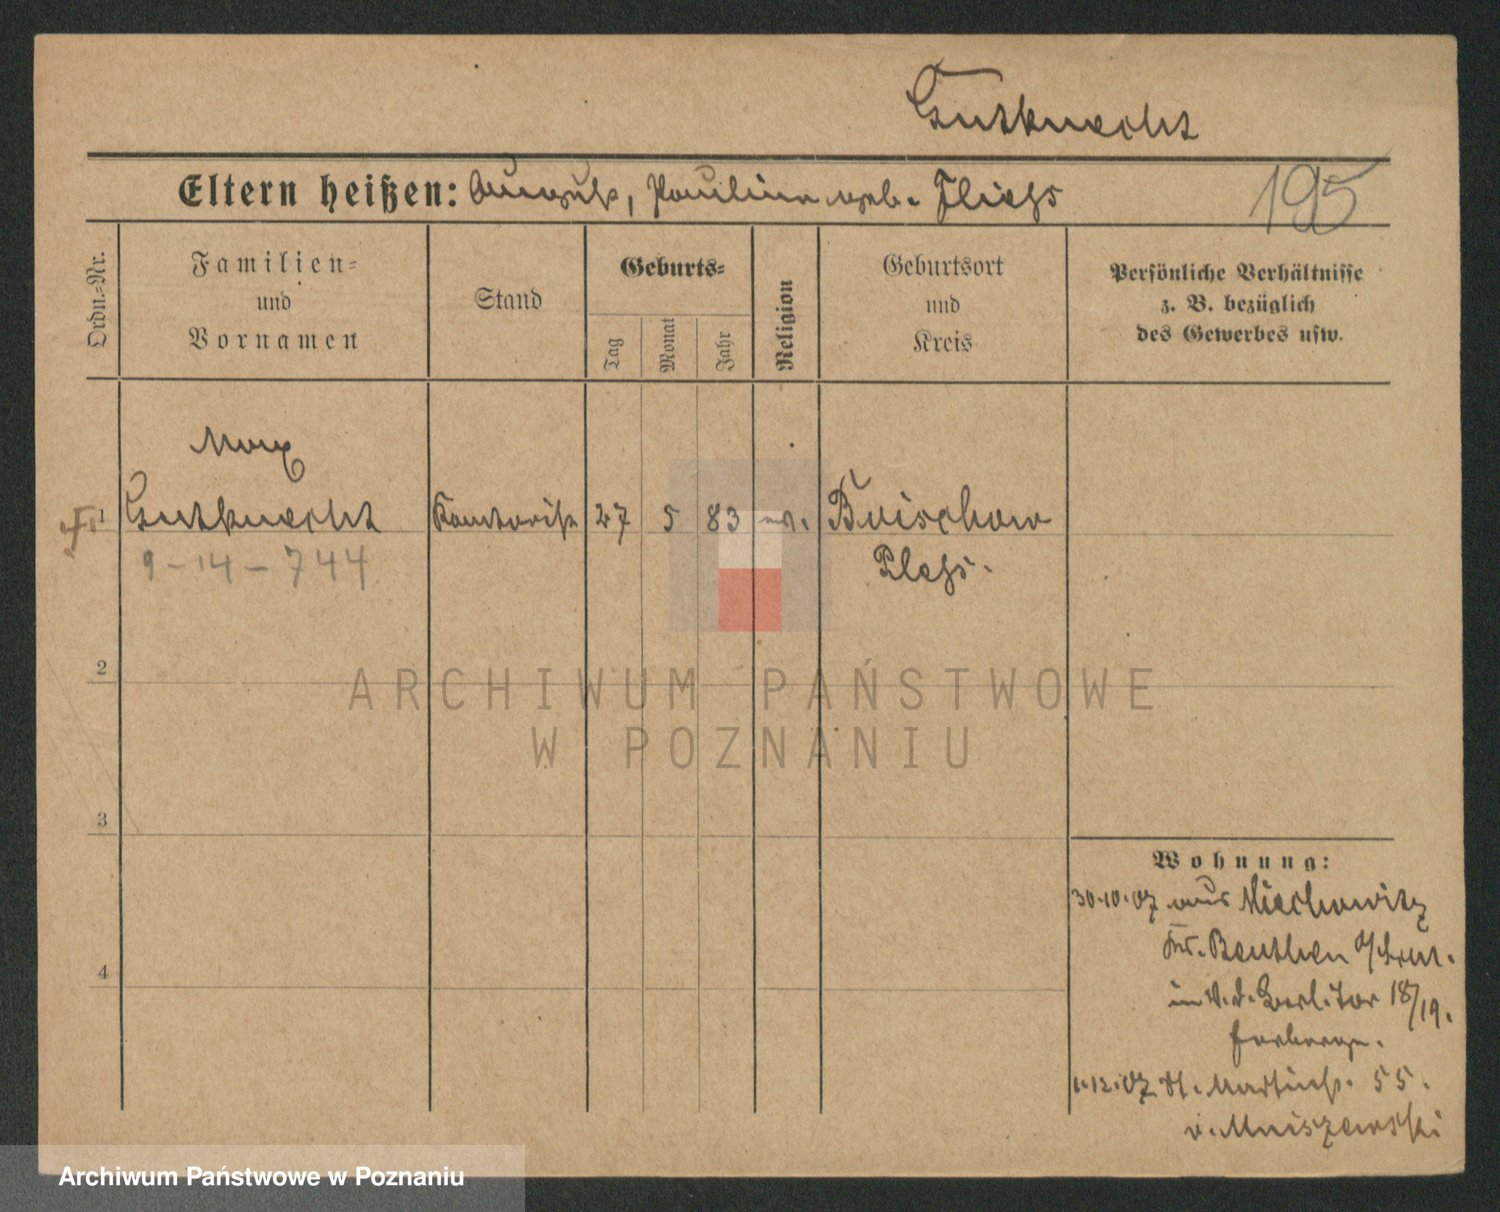 Gutknecht
Eltern heißen: August, Pauline geb. Fliegs
195
Ordn.-Nr.
Familien-
und
Vornamen
Stand
Geburts-
Tag
Monat
Jahr
Religion
Geburtsort
und
Kreis
Persönliche Verhältnisse
z. B. bezüglich
des Gewerbes usw.
Max
1 Gutknecht Kontorist 27 5 83 ev. Boischow
9-14-744 Pless.
2
ARCHIWUM PAŃSTWOWE
W POZNANIU
3
4
Wohnung:
30.10.07 aus Miechowitz
Kr. Beuthen
in V. d. Berl. Tor 18/19.
Herberge.
1.12.07 St. Martinstr. 55.
v. Mniszewski
Archiwum Państwowe w Poznaniu